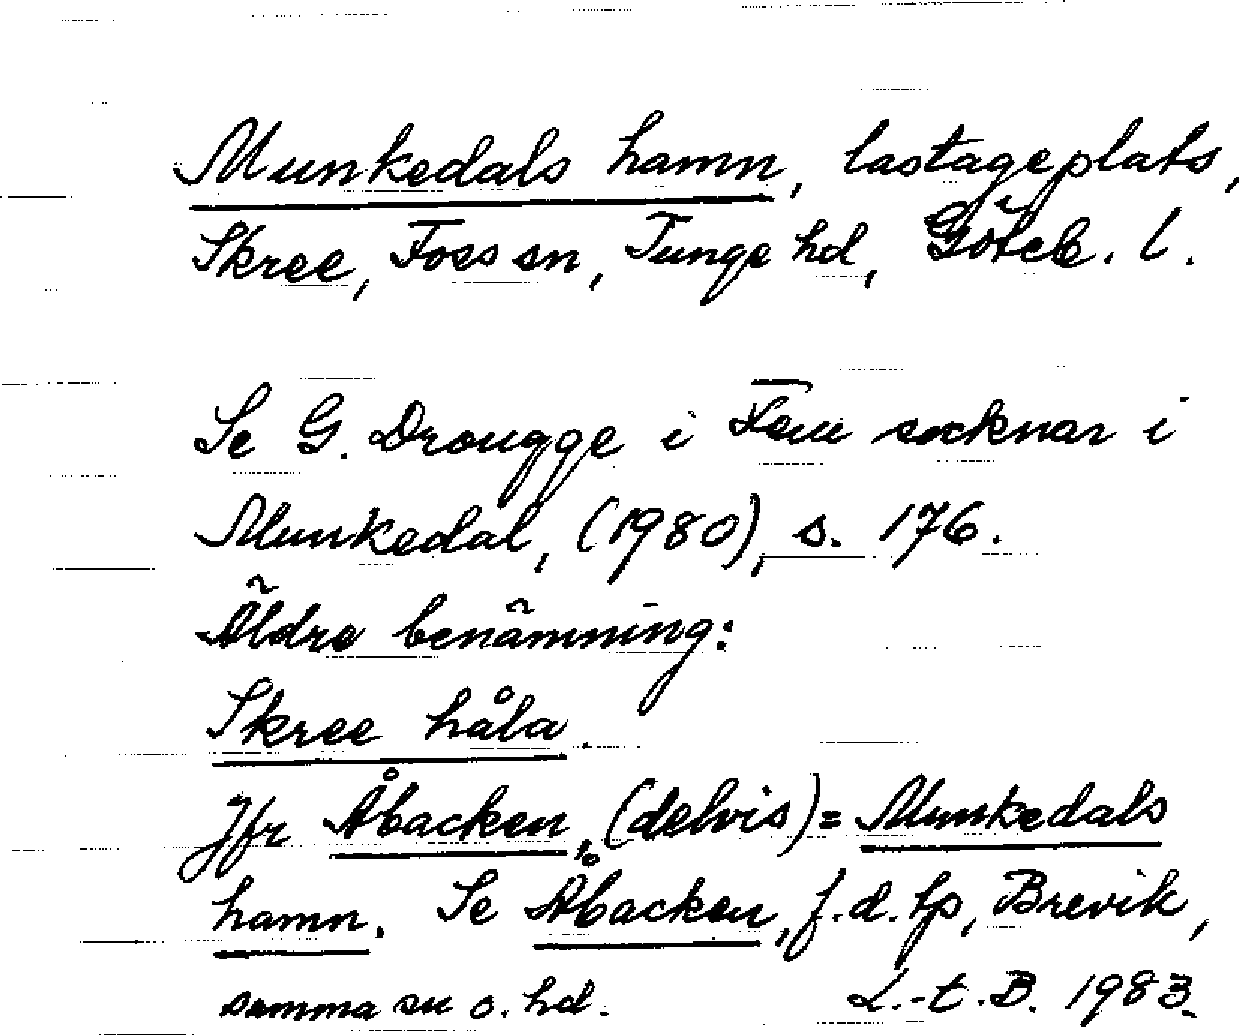 Munkedals hamn, lastageplats,
Skree, Foss sn, Tunge hd, Göteb. l.
Se G. Drougge i Fem socknar i
Munkedal, (1980), s. 176.
Äldre benämning:
Skree håla
Jfr Åbacken, (delvis) = Munkedals
hamn. Se Åbacken, f.d. tp, Brevik,
samma sn o. hd. L.-t.B. 1983.